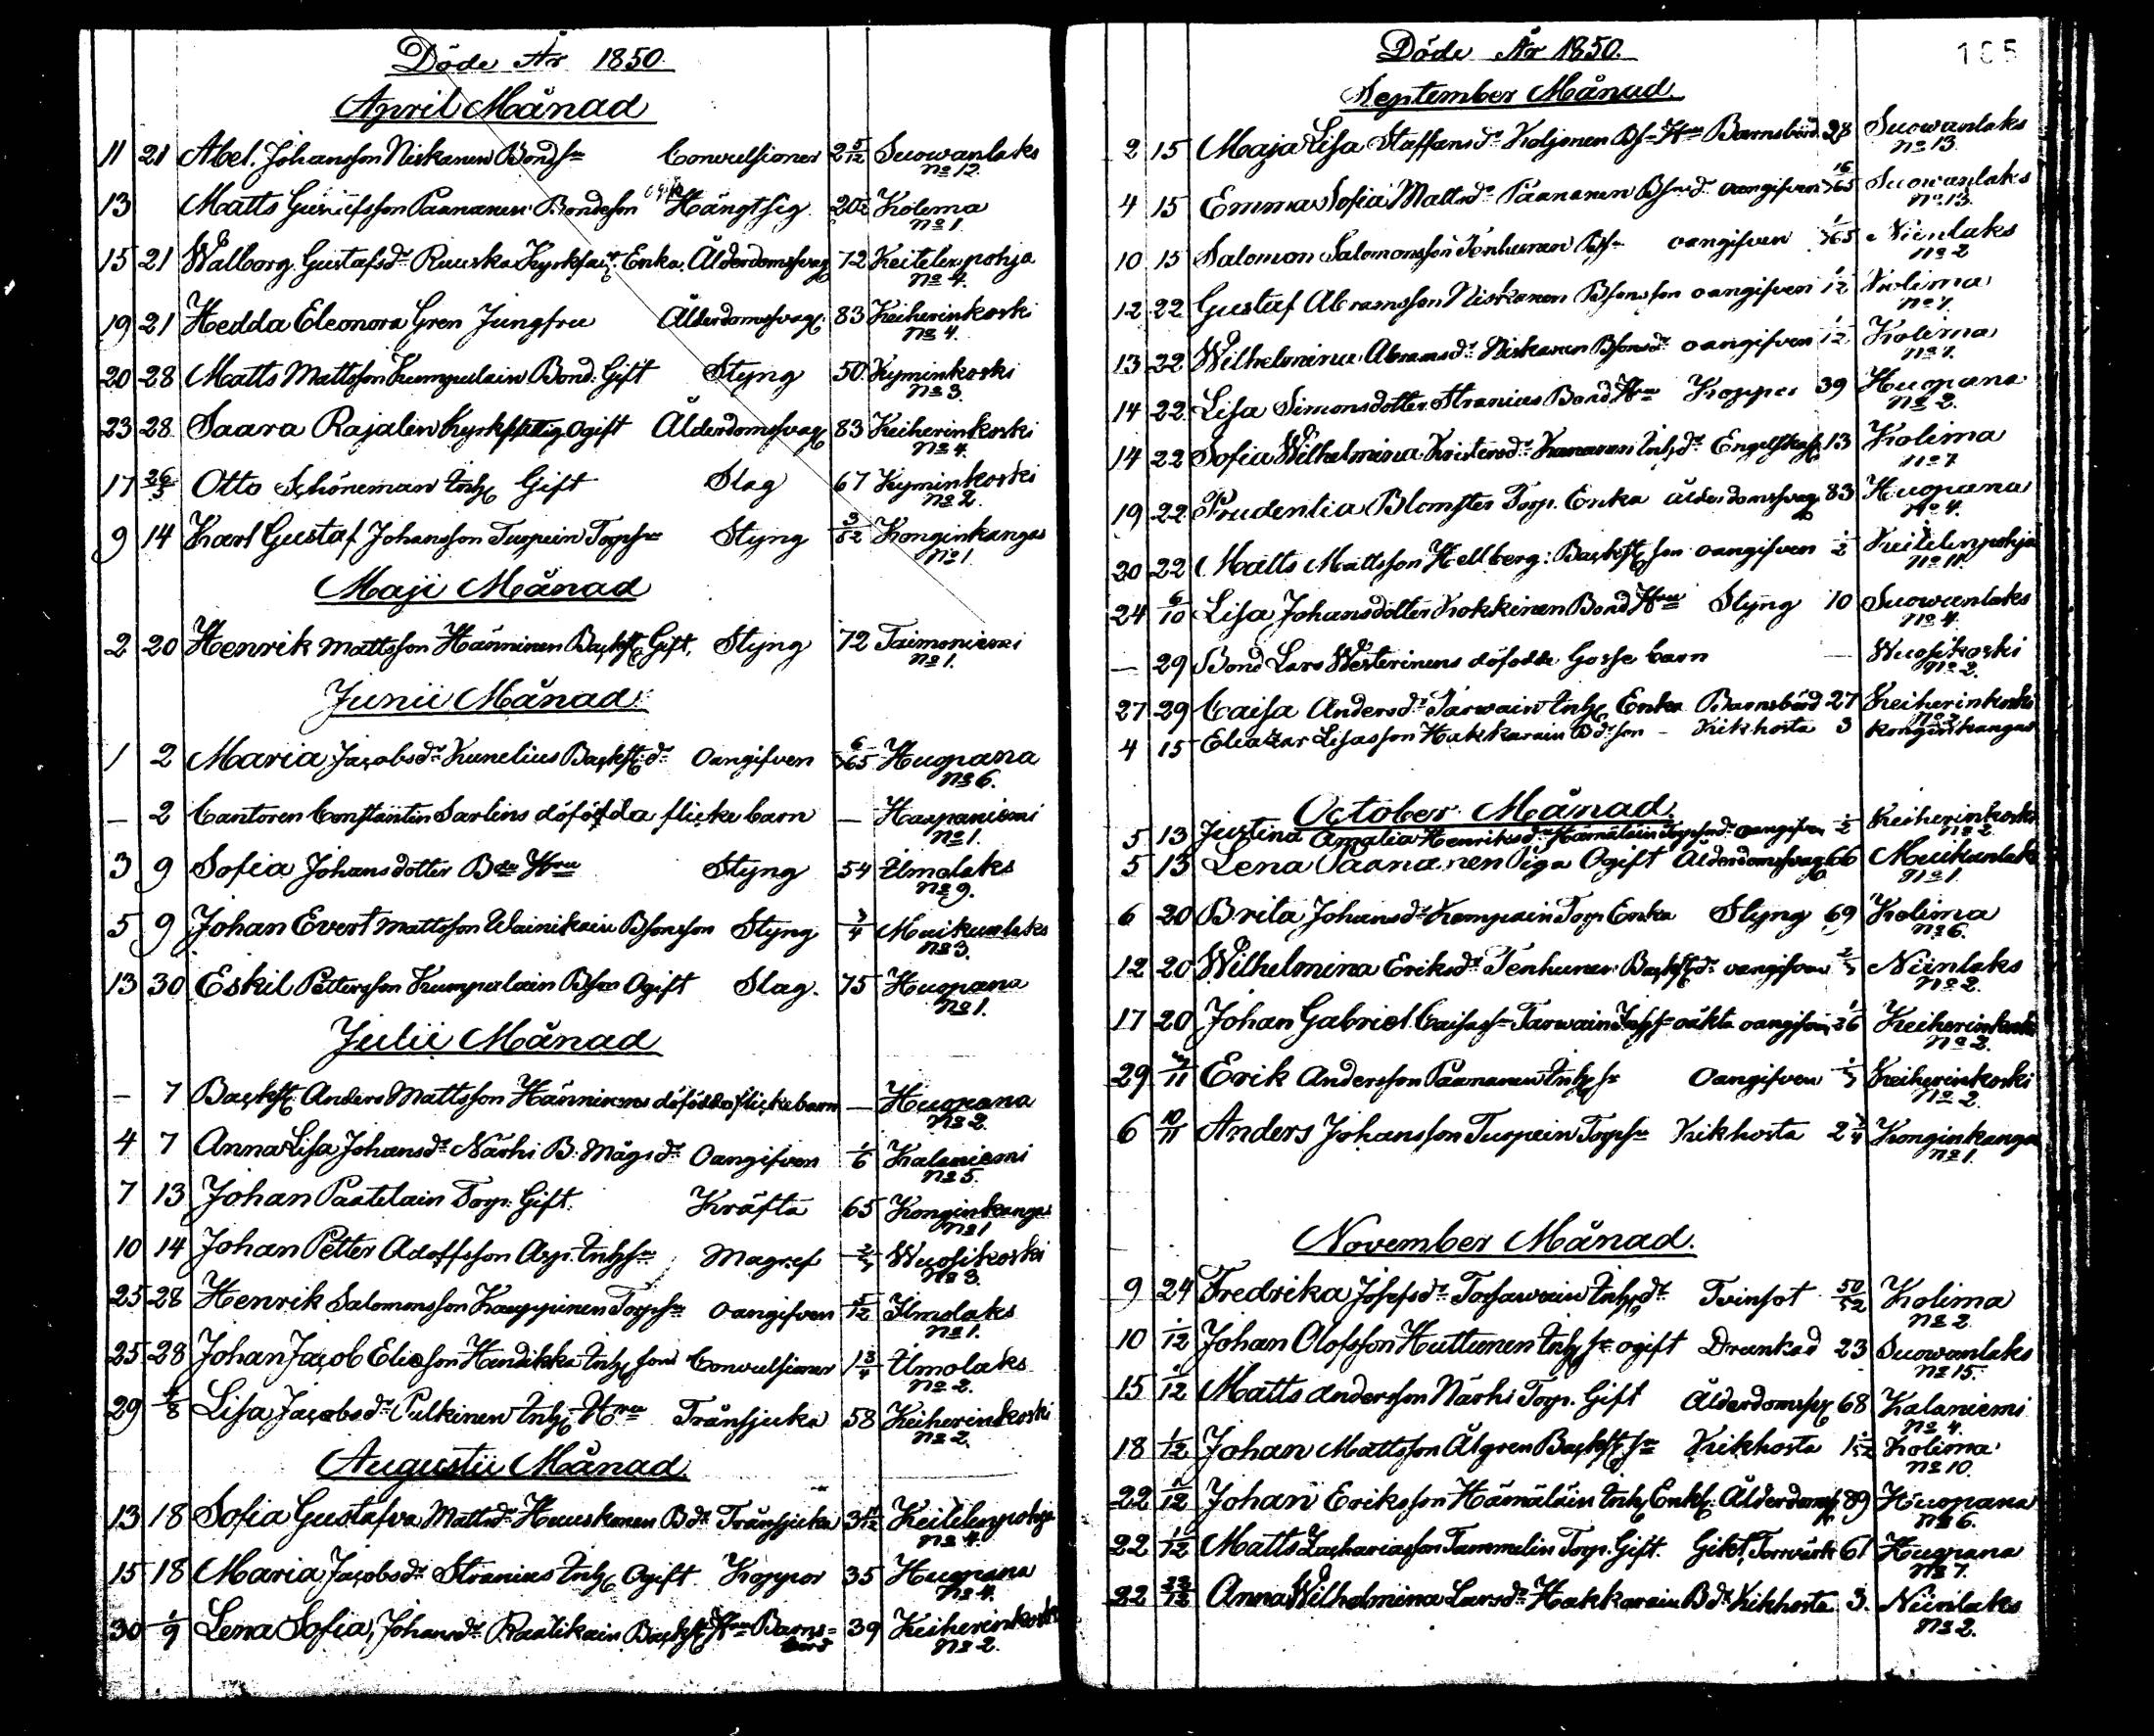 Döde År 1850.
April Månad
11 21 Abel Johansson Niskanen Bondsn Convulsioner 2 5/12 Suowanlaks
No 12.
13 Matts Gustafsson Paananen Bondeson ogift Hängt sig 20 Kolima
No 1
15 21 Walborg Gustafsdr Ruuska Enka Ålderdomssvag 72 Keitelenpohja
No 4.
19 21 Hedda Eleonora Gren Jungfru Ålderdomssvag 83 Keiherinkoski
No 4.
20 28 Matts Mattsson Kumpulain Bond. Gift Styng 50 Kyminkoski
No 3.
23 28 Saara Rajalin Kyrkfattig Ogift Ålderdomssvag 83 Keiherinkoski
No 4.
17 26/5 Otto Schöneman Inhs Gift Slag 67 Kyminkoski
No 2.
9 14 Karl Gustaf Johansson Turpein Torpsn Styng 3/52 Konginkangas
No 1
Maji Månad
2 20 Henrik Mattsson Hänninen Backst Gift. Styng 72 Taimoniemi
No 1.
Junii Månad
1 2 Maria Jacobsdr Kunelius Backst dr Oangifven 6/365 Huopana
No 6.
— 2 Cantoren Constantin Sarlins dödfödda flicke barn — Haapaniemi
No 1.
3 9 Sofia Johansdotter Bde Hru Styng 54 Ilmolaks
No 9.
5 9 Johan Evert Mattsson Wainikain Bsonson Styng 3/4 Muikunlaks
No 3.
13 30 Eskil Pettersson Kumpulain Bson Ogift Slag. 75 Huopana
No 1.
Julii Månad
— 7 Backst. Anders Mattsson Hänninens dödfödda flickebarn — Huopana
No 2.
4 7 Anna Lisa Johansdr Närhi B. Mågs dr Oangifven 1/6 Kalaniemi
No 5.
7 13 Johan Paatelain Torp. Gift. Kräfta 65 Konginkangas
No 1
10 14 Johan Petter Adolfsson Asp. Inhsn Magref Wuosikoski
No 3.
25 28 Henrik Salomonsson Kauppinen Torpsn oangifven 5/12 Ilmolaks
No 1.
25 28 Johan Jacob Eliasson Handikka Inhs son Convulsioner 1 3/4 Ilmolaks
No 2.
29 4/8 Lisa Jacobsdr Pulkinen Inhs Hru Trånsjuka 58 Keiherinkoski
No 2.
Augustii Månad
13 18 Sofia Gustafva Mattsdr Hauskanen Bdr Trånsjuka Keitelenpohja
No 4.
15 18 Maria Jacobsdr Stranius Inhs Ogift Koppor 35 Huopana
No 4.
30 1/9 Lena Sofia Johansdr Raatikain Backst Hru Barns=
börd 39 Keiherinkoski
No 2.
Döde År 1850.
105
September Månad.
2 15 Maja Lisa Staffansdr Koljonen Bsn Hru Barnsbörd 28 Suowanlaks
No 13.
4 15 Emma Sofia Mattsdr Paananen Bsons dr oangifven 16/365 Suowanlaks
No 13.
10 15 Salomon Salomonsson Tenhunen oangifven 1/365 Niinlaks
No 2
12 22 Gustaf Abramsson Niskanen Bsonsson oangifven 1/12 Kolima
No 7.
13 22 Wilhelmina Abramsdr Niskanen Bsonsdr oangifven 1/12 Kolima
No 7.
14 22 Lisa Simonsdotter Stranius Bond Hru Koppor 39 Huopana
No 2.
14 22 Sofia Wilhelmina Kristersdr Kananen Inhsdr 13 Kolima
No 7
19 22 Prudentia Blomster Torp. Enka ålderdomssvag 83 Huopana
No 4.
20 22 Matts Mattsson Hellberg: Backst son oangifven 1/2 Keitelenpohja
No 11.
24 6/10 Lisa Johansdotter Kokkinen Bond Hru Styng 70 Suowanlaks
No 4.
— 29 Bond Lars Westerinens dödfödda Gosse barn — Wuosikoski
No 2.
27 29 Caisa Andersdr Tarwain Inhs Enka Barnsbörd 27 Keiherinkoski
No 2
4 15 Eleazar Lisasson Hakkarain Bdrson - Kikhosta 3 Konginkangas
October Månad.
5 13 Justina Amalia Henriksdr Hämäläin Torpsdr oangifven 1/2 Keiherinkoski
No 2
5 13 Lena Paananen Piga Ogift Ålderdomssvag 66 Muikunlaks
No 1.
6 20 Brita Johansdr Kempain Torp Enka Styng 69 Kolima
No 6.
12 20 Wilhelmina Eriksdr Tenhunen Backst dr oangifven Niinlaks
No 2.
17 20 Johan Gabriel Caisasn Tarwain Inhsn oäkta oangifven 1/26 Keiherinkoski
No 2.
29 Erik Andersson Paananen Inhsn Oangifven Keiherinkoski
No 2.
6 10/11 Anders Johansson Turpein Torpsn Kikhosta 2 3/4 Konginkangas
No 1.
November Månad.
9 24 Fredrika Josefsdr Inhsdr Tvinsot 50/52 Kolima
No 2.
10 1/12 Johan Olofsson Huttunen Inhsn ogift Drunkad 23 Suowanlaks
No 15.
15 1/12 Matts Andersson Närhi Torp. Gift Ålderdomssv 68 Kalaniemi
No 4.
18 1/12 Johan Mattsson Älgren Backst sn Kikhosta Kolima
No 10.
22 1/12 Johan Eriksson Hämäläin Inhs Enkl. Ålderdomss 89 Huopana
No 6.
22 1/12 Matts Zachariasson Tammelin Torp. Gift. Gikt, Torrvärk 61 Huopana
No 7.
22 22/12 Anna Wilhelmina Larsdr Hakkarain Bdr Kikhosta 3. Niinlaks
No 2.